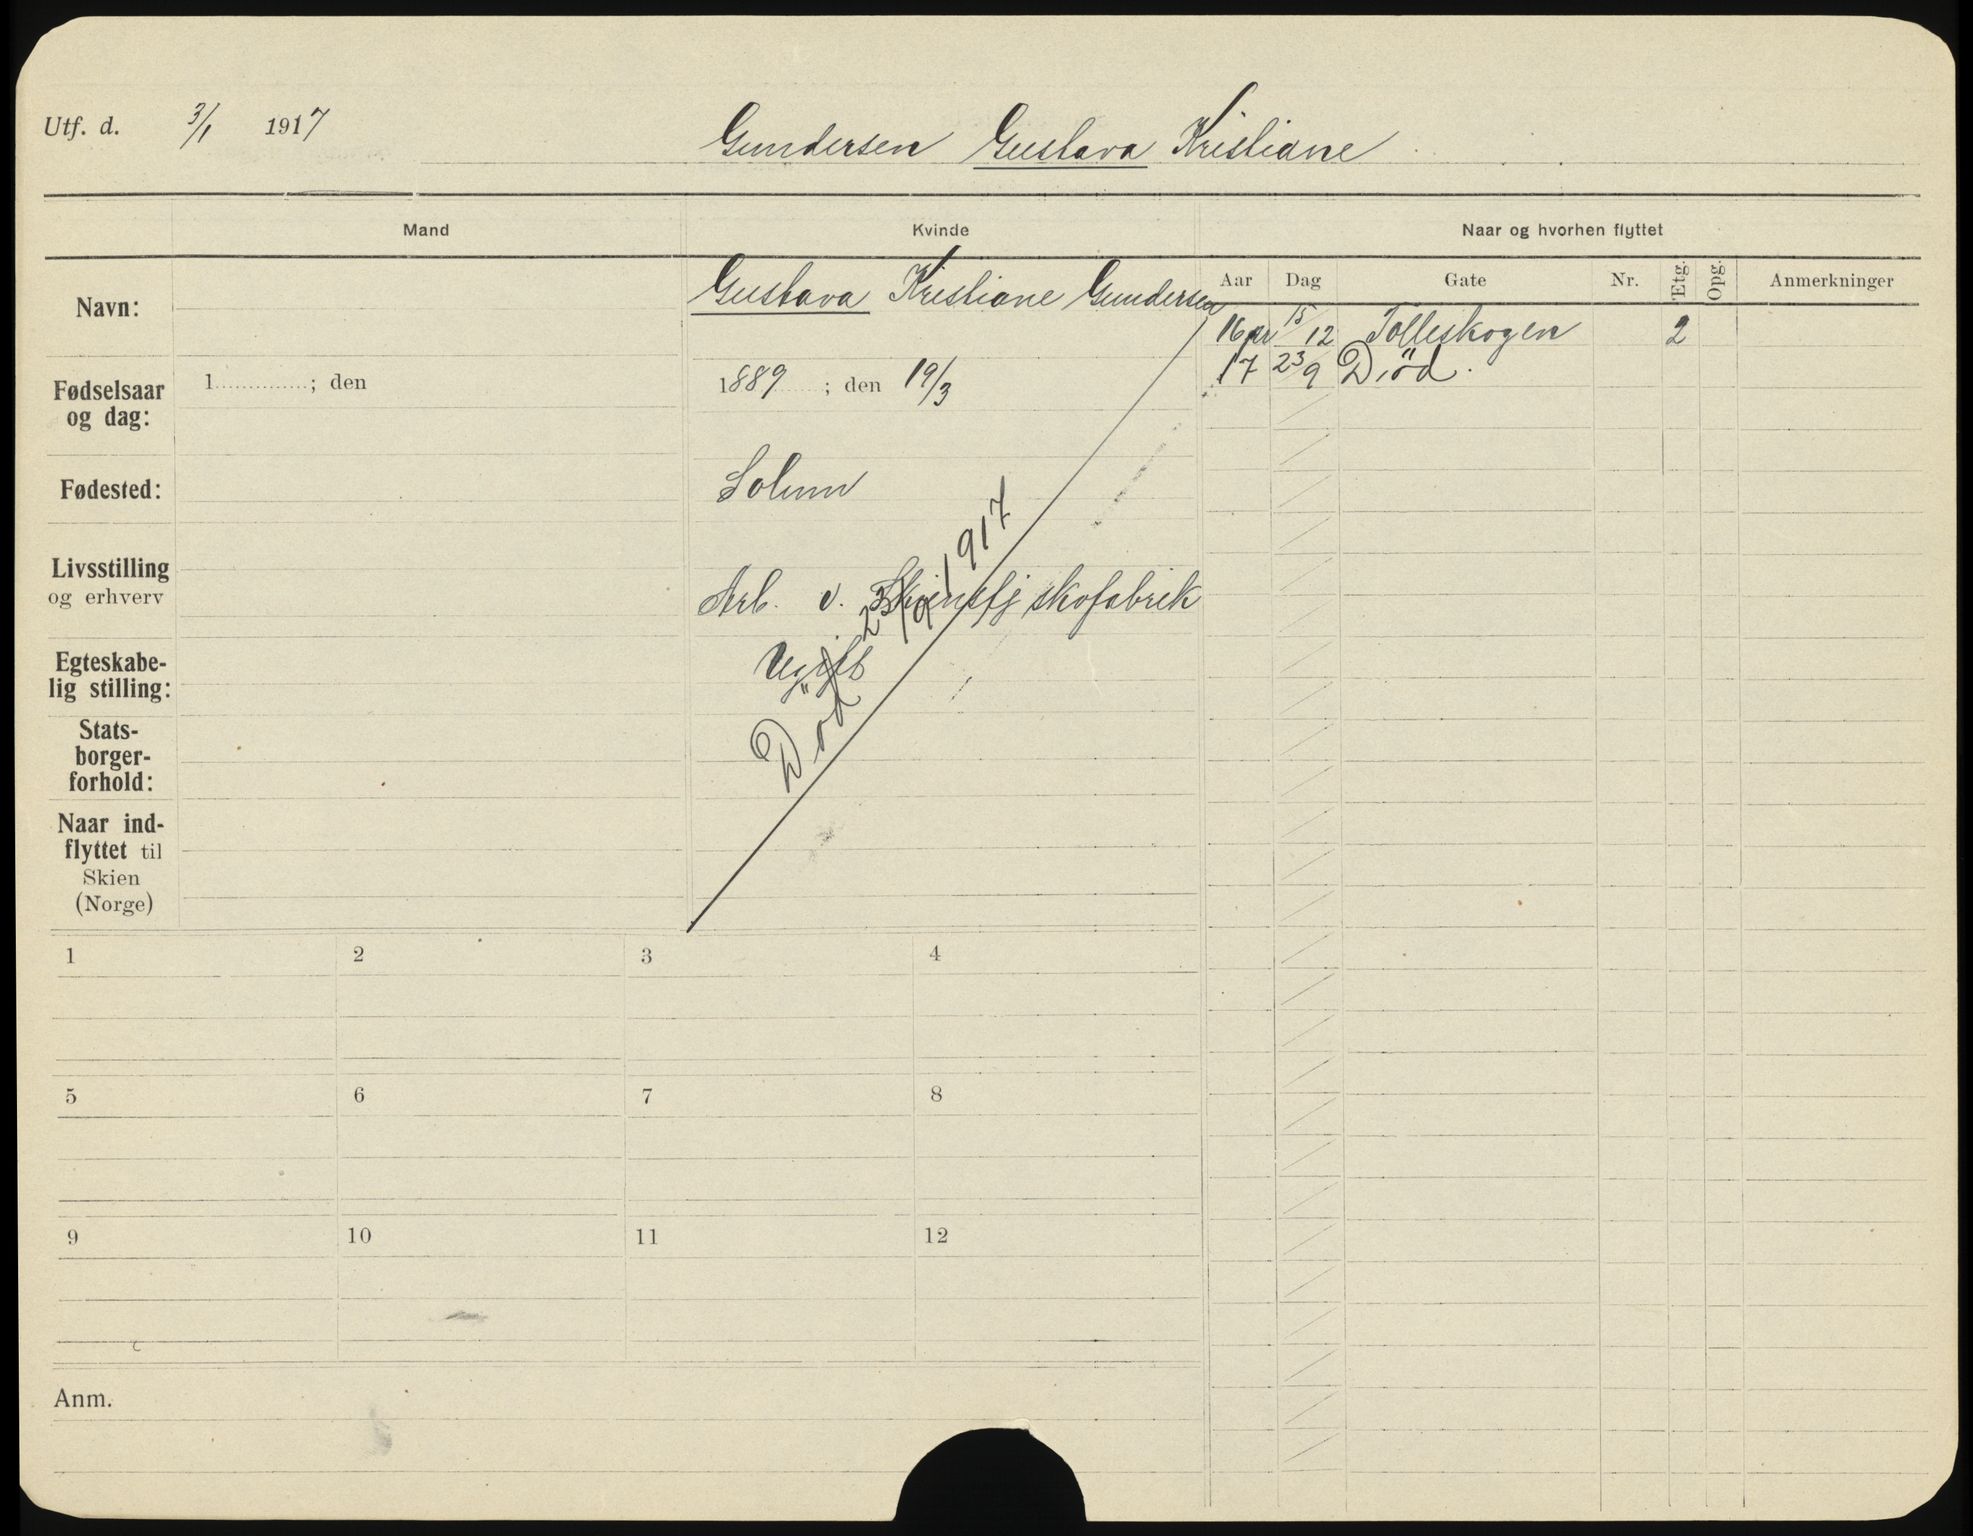 Utf. d. 3/1 1917
Gundersen Gustava Kristiane
Mand
Kvinde
Naar og hvorhen flyttet
Navn:
Gustava Kristiane Gundersen
Aar Dag Gate Nr. Etg. Opg. Anmerkninger
16 pr 15/12 Tolleskogen 2
17 23/9 Död.
Fødselsaar
og dag:
1 ; den
1889 ; den 19/3
Fødested:
Solum
Livsstilling
og erhverv
Arb. v. Skiensfj skofabrik
Egteskabe-
lig stilling:
Ugift
Död 23/9 1917
Stats-
borger-
forhold:
Naar ind-
flyttet til
Skien
(Norge)
1 2 3 4
5 6 7 8
9 10 11 12
Anm.